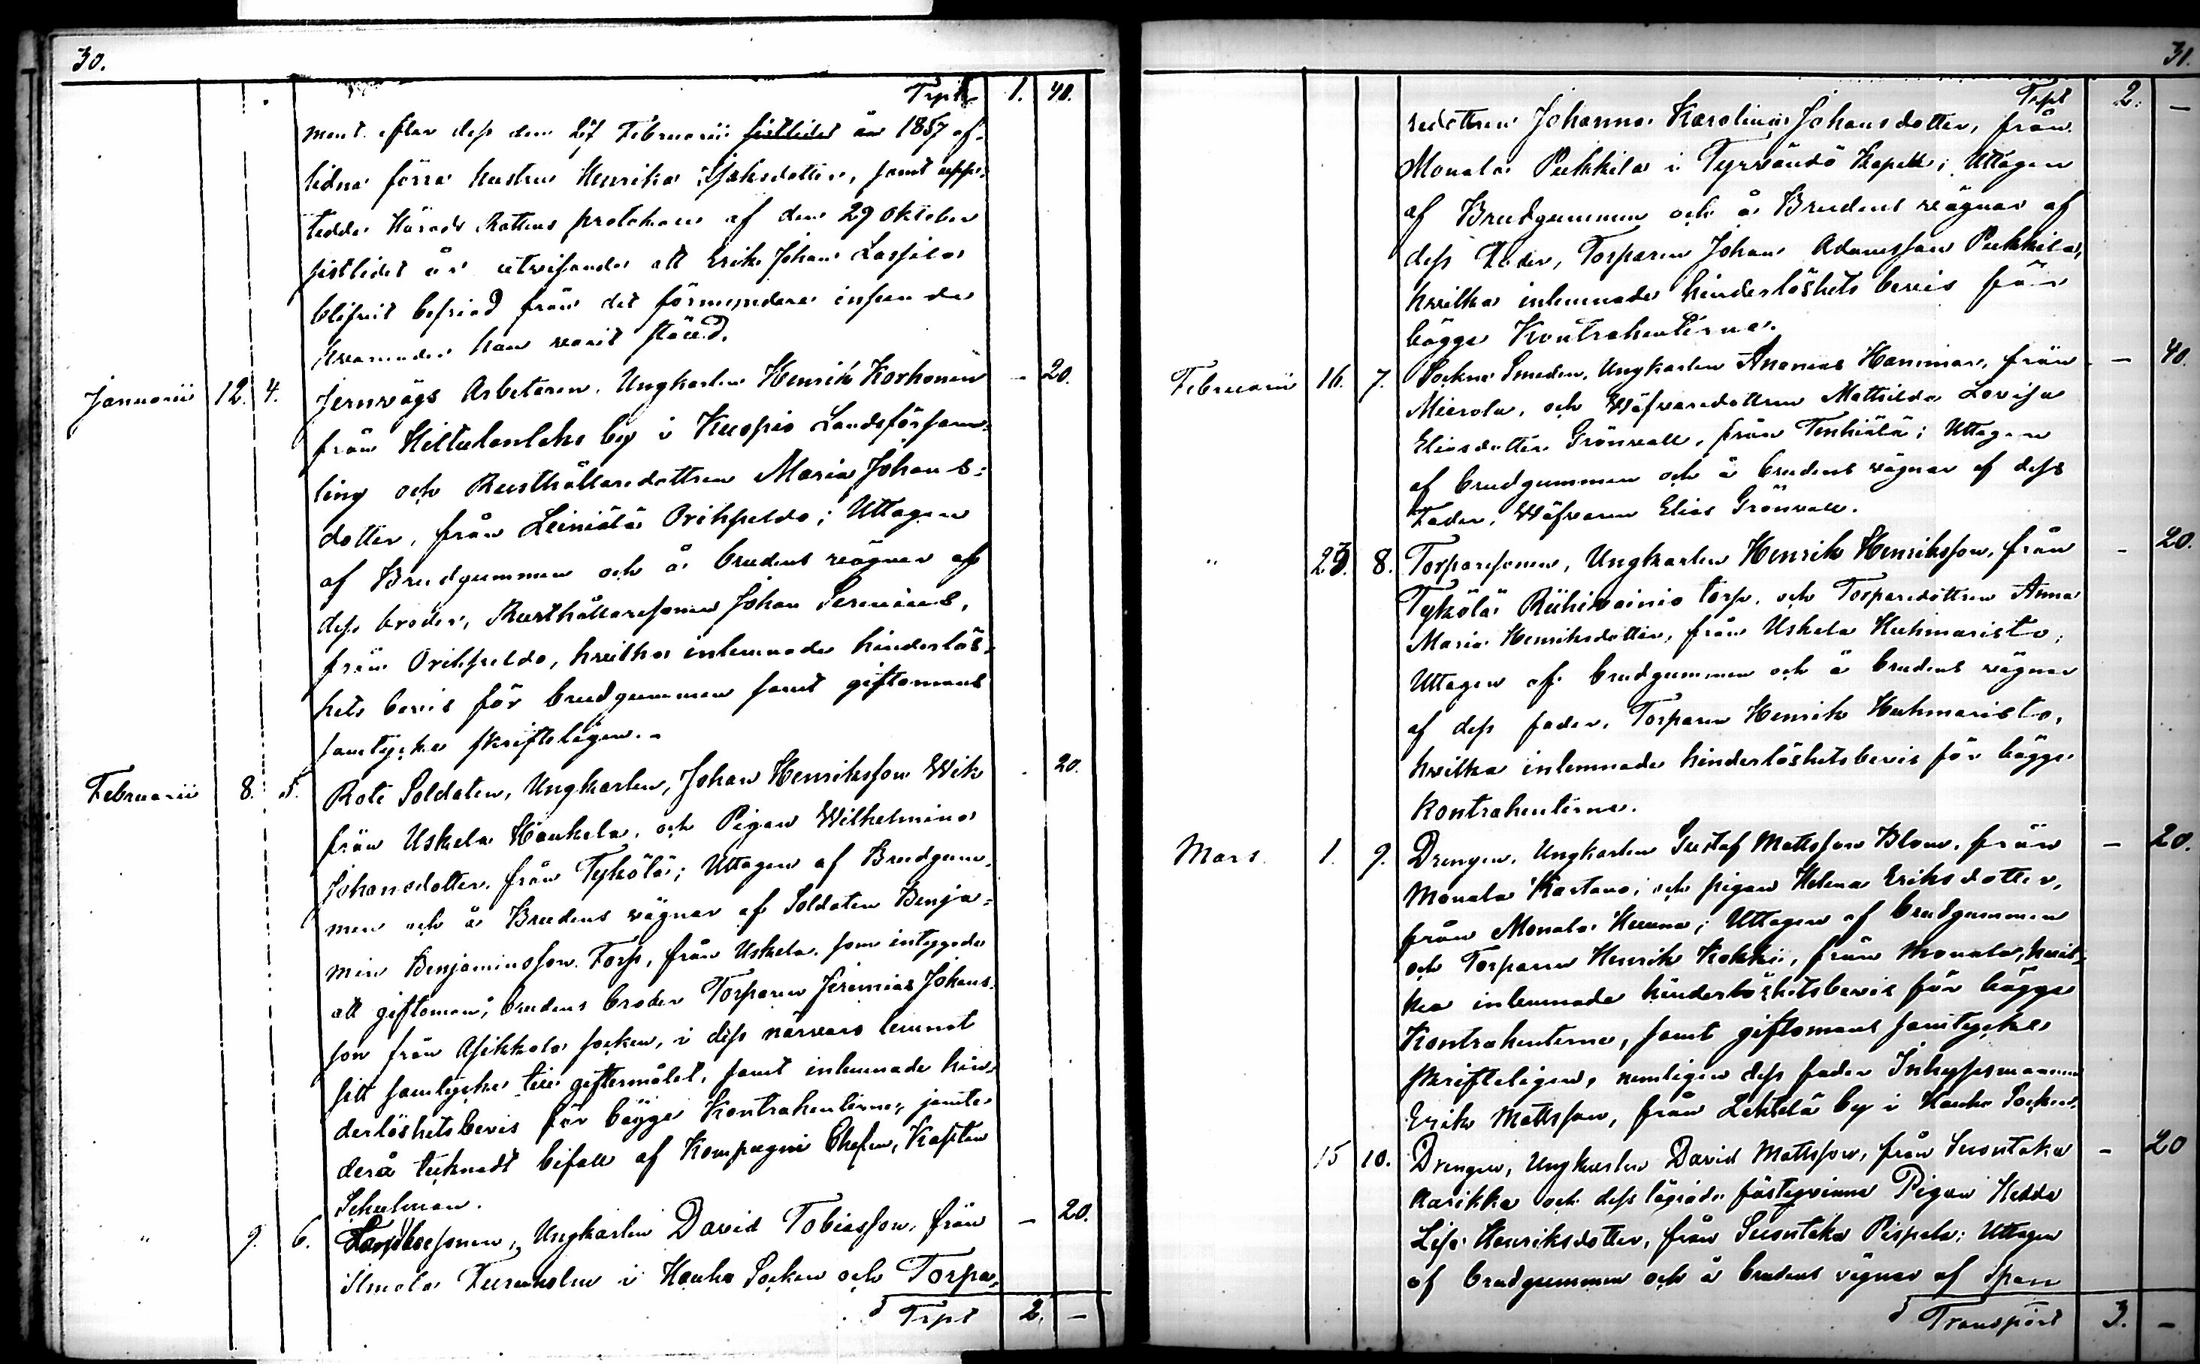 30.
Trpt 1. 40.
ment efter dess den 27 Februarii sistledet år 1857 af-
lidna förra hustru Henrika Isaksdotter, samt uppe-
tedde Härads Rättens protokoll af den 29 Oktober
sistledet år utvisande att Erik Johan Lassila
blifvit befriad från det förmyndere inseende
hvarunder han varit stäld.
Januarii 12. 4. Jernvägs Arbetaren, Ungkarlen Henrik Korhonen - 20.
från Hiltulanlaks by i Kuopio Landsförsam-
ling och Rusthållaredottren Maria Johans-
dotter, från Leiniälä Orihpeldo; Uttagen
af Brudgummen och å brudens vägnar af
dess broder, Rusthållaresonen Johan Jeremias,
från Orihpeldo, hvilka inlemnade hinderlös-
hets bevis för brudgummen samt giftomans
samtycke skrifteligen.
Februarii 8. 5. Rote Soldaten, Ungkarlen, Johan Henriksson Wik - 20.
från Uskela Haukela, och Pigan Wilhelmina
Johansdotter, från Tykölä; Uttagen af Brudgum-
men och å Brudens vägnar af Soldaten Benja-
min Benjaminsson Torp, från Uskela, som intygade
att giftoman, brudens broder Torparen Jeremias Johans-
son från Asikkala socken, i dess närvaro lemnat
sitt samtycke till giftermålet, samt inlemnade hin-
derlöshetsbevis för bägge Kontrahenterne, jemte
derå tecknadt bifall af Kompagni Chefen, Kapten
Schulman.
" 9. 6. Torparesonen, Ungkarlen David Tobiasson, från - 20.
Ilmola i Hauho Socken och Torpa-
Trpt 2. -
31.
Trpt 2. -
redottren Johanna Karolina Johansdotter, från
Monala Pukkila i Tyrväntö Kapell; Uttagen
af Brudgummen och å Brudens vägnar af
dess Fader, Torparen Johan Adamsson Pukkila,
hvilka inlemnade hinderlöshets bevis för
bägge Kontrahenterna.
Februarii 16. 7. Sockne Smeden, Ungkarlen Ananias Hammar, från - 40.
Mierola, och Wäfvaredottren Mathilda Lovisa
Eliasdotter Grönvall, från Tenhiälä; Uttagen
af brudgummen och å brudens vägnar af dess
Fader, Wäfvaren Elias Grönvall.
" 23. 8. Torparesonen, Ungkarlen Henrik Henriksson, från - 20.
Tykölä Riihivainio torp, och Torparedottren Anna
Maria Henriksdotter, från Uskela Huhmaristo;
Uttagen af brudgummen och å brudens vägnar
af dess fader, Torparen Henrik Huhmaristo,
hvilka inlemnade hinderlöshetsbevis för bägge
kontrahenterna.
Mars 1. 9. Drengen, Ungkarlen Gustaf Mattsson Blom, från - 20.
Monala Kartano, och pigan Helena Eriksdotter,
från Monala Heuna; Uttagen af brudgummen
och Torparen Henrik Kokki, från Monala, hvil-
ka inlemnade hinderlöshetsbevis för bägge
Kontrahenterne, samt giftomans samtycke
skrifteligen, nemligen dess fader Inhysesmannen
Erik Mattsson, från Lehtelä by i Hauho Socken.
15 10. Drengen, Ungkarlen David Mattsson, från Suontaka - 20
Karikka och dess lägrade fästeqvinna Pigan Hedda
Lisa Henriksdotter, från Suontaka Pispala; Uttagen
af brudgummen och å brudens vägnar af Span
Transport 3. -